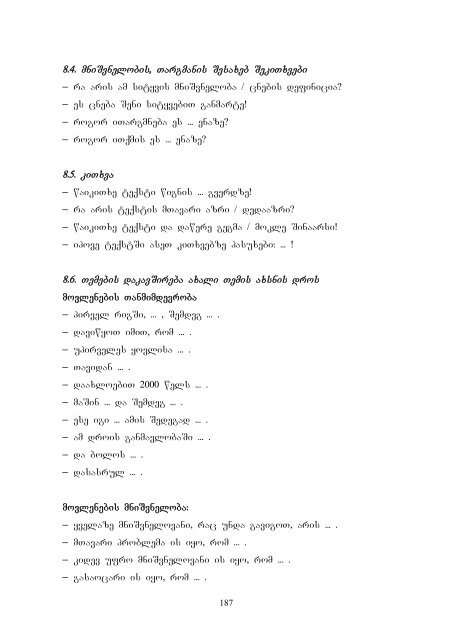 8.4. მნიშვნელობის, თარგმანის შესახებ შეკითხვები
– რა არის ამ სიტყვის მნიშვნელობა / ცნების დეფინიცია?
– ეს ცნება შენი სიტყვებით განმარტე!
– როგორ ითარგმნება ეს ... ენაზე?
– როგორ ითქმის ეს ... ენაზე?
8.5. კითხვა
– წაიკითხე ტექსტი წიგნის ... გვერდზე!
– რა არის ტექსტის მთავარი აზრი / დედააზრი?
– წაიკითხე ტექსტი და დაწერე გეგმა / მოკლე შინაარსი!
– იპოვე ტექსტში ასეთ კითხვებზე პასუხები: ... !
8.6. თემების დაკავშირება ახალი თემის ახსნის დროს
მოვლენების თანმიმდევრობა
– პირველ რიგში, ... , შემდეგ ... .
– დავიწყოთ იმით, რომ ... .
– უპირველეს ყოვლისა ... .
– თავიდან ... .
– დაახლოებით 2000 წელს ... .
– მაშინ ... და შემდეგ ... .
– ესე იგი ... ამის შედეგად ... .
– ამ დროის განმავლობაში ... .
– და ბოლოს ... .
– დასასრულ ... .
მოვლენების მნიშვნელობა:
– ყველაზე მნიშვნელოვანი, რაც უნდა გავიგოთ, არის ... .
– მთავარი პრობლემა ის იყო, რომ ... .
– კიდევ უფრო მნიშვნელოვანი ის იყო, რომ ... .
– გასაოცარი ის იყო, რომ ... .
187